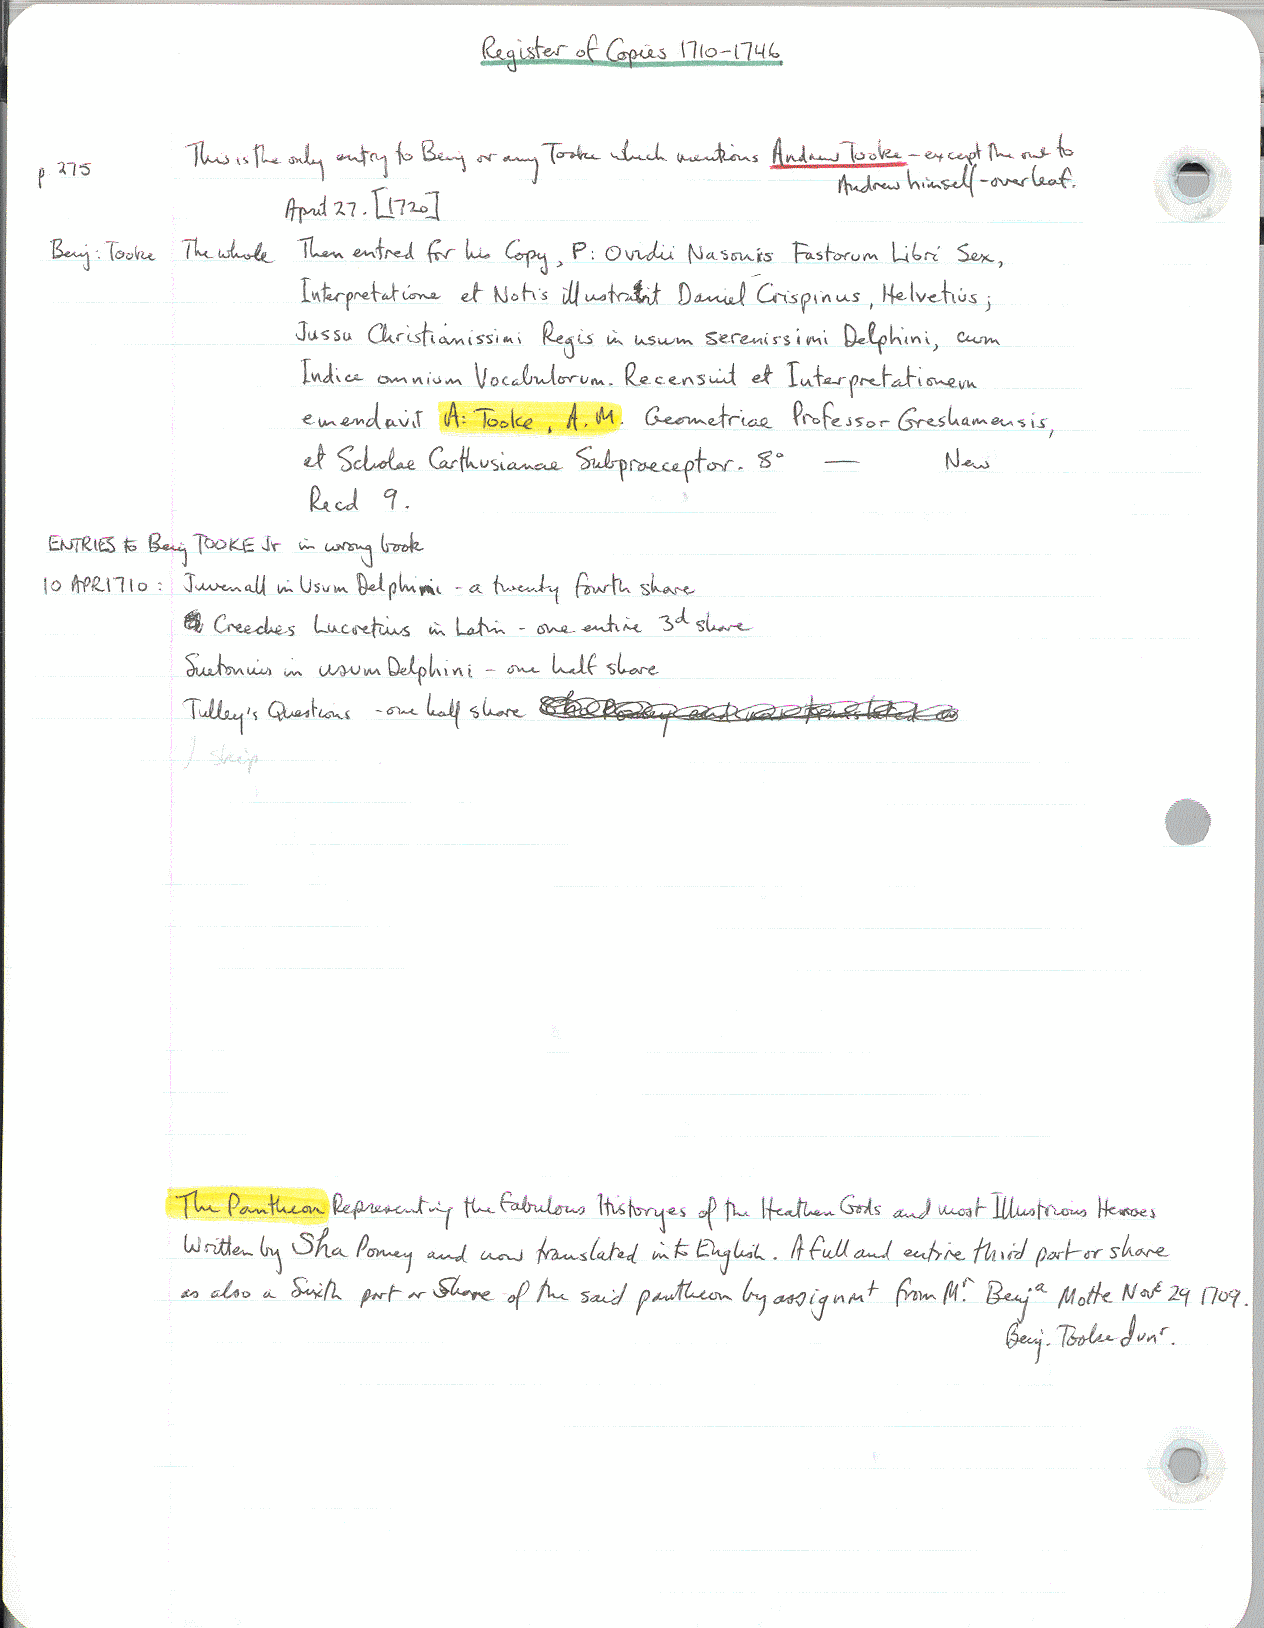 Register of Copies 1710-1746
p 275 This is the only entry to Benj or any Tooke which mentions Andrew Tooke - except the one to
Andrew himself - overleaf.
April 27. [1720]
Benj: Tooke The whole Then entred for his Copy, P: Ovidii Nasonis Fastorum Libri Sex,
Interpretatione et Notis illustravit Daniel Crispinus, Helvetius;
Jussu Christianissimi Regis in usum serenissimi Delphini, cum
Indice omnium Vocabulorum. Recensuit et Interpretationem
emendavit A: Tooke, A.M. Geometriae Professor Greshamensis,
et Scholae Carthusianae Subpraeceptor. 8° — New
Recd 9.
ENTRIES to Benj TOOKE Jr in wrong book
10 APR 1710: Juvenall in Usum Delphini - a twenty fourth share
Creeches Lucretius in Latin - one entire 3d share
Suetonius in usum Delphini - one half share
Tulley's Questions - one half share
skip
The Pantheon Representing the Fabulous Historyes of the Heathen Gods and most Illustrious Heroes
Written by Sha Pomey and now translated into English. A full and entire third part or share
as also a Sixth part or Share of the said pantheon by assignmt from Mr. Benja Motte Novr 29 1709.
Benj. Tooke Junr.